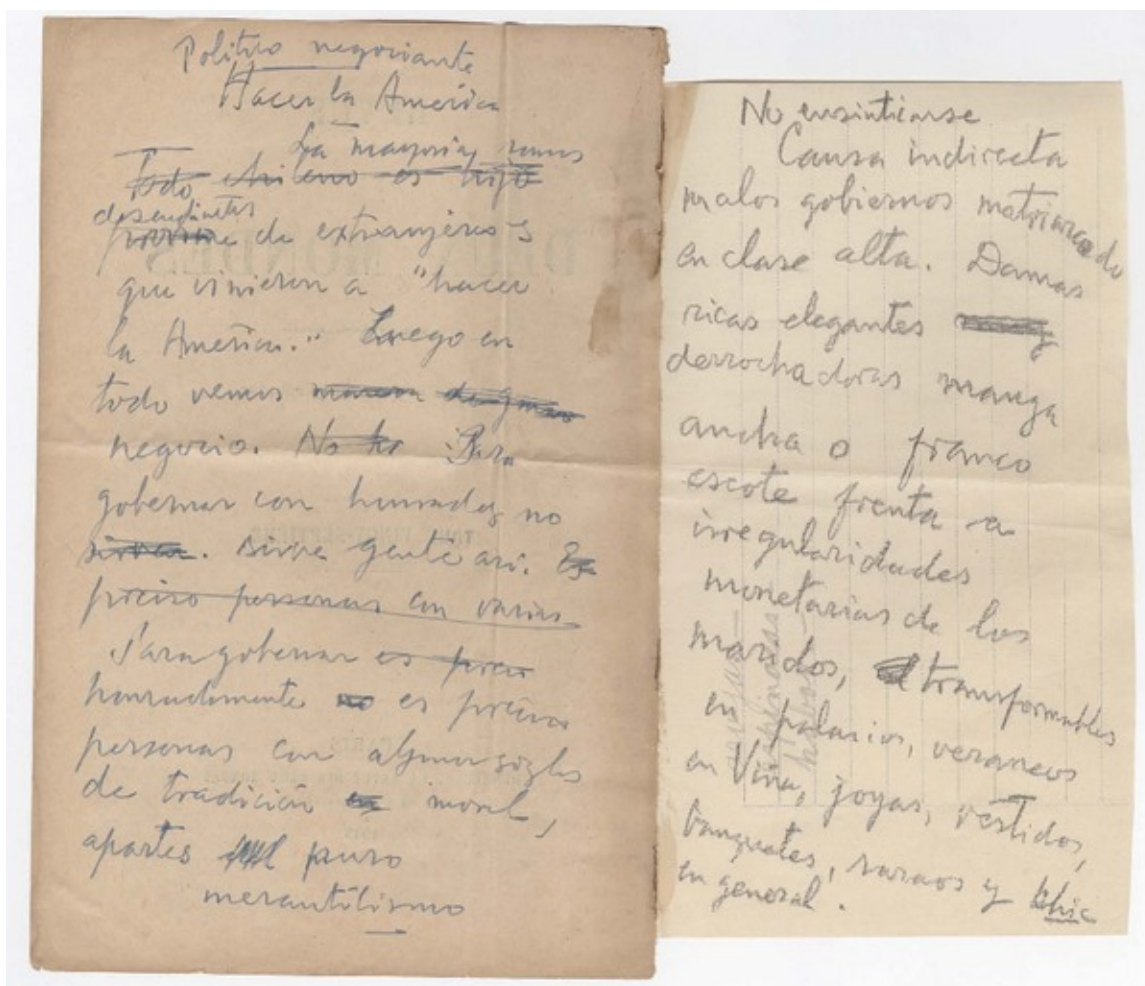 Politico negociante
Hacer la América
La mayoría somos
Todo chileno es hijo
descendientes
de extranjeros
que vinieron a "hacer
la América." Luego en
todo vemos
negocio. No ha Para
gobernar con honradez no
sirven. sirve gente así. Es
preciso personas con varios
Para gobernar es preciso
honradamente no es preciso
personas con algunos siglos
de tradición en moral,
apartes del puro
mercantilismo
No ensintiarse
Causa indirecta
malos gobiernos matriarcado
en clase alta. Damas
ricas elegantes
derrochadoras manga
ancha o franco
escote frente a
irregularidades
monetarias de los
maridos, transformables
en palacios, veraneos
en Viña, joyas, vestidos,
banquetes, saraos y chic
en general.